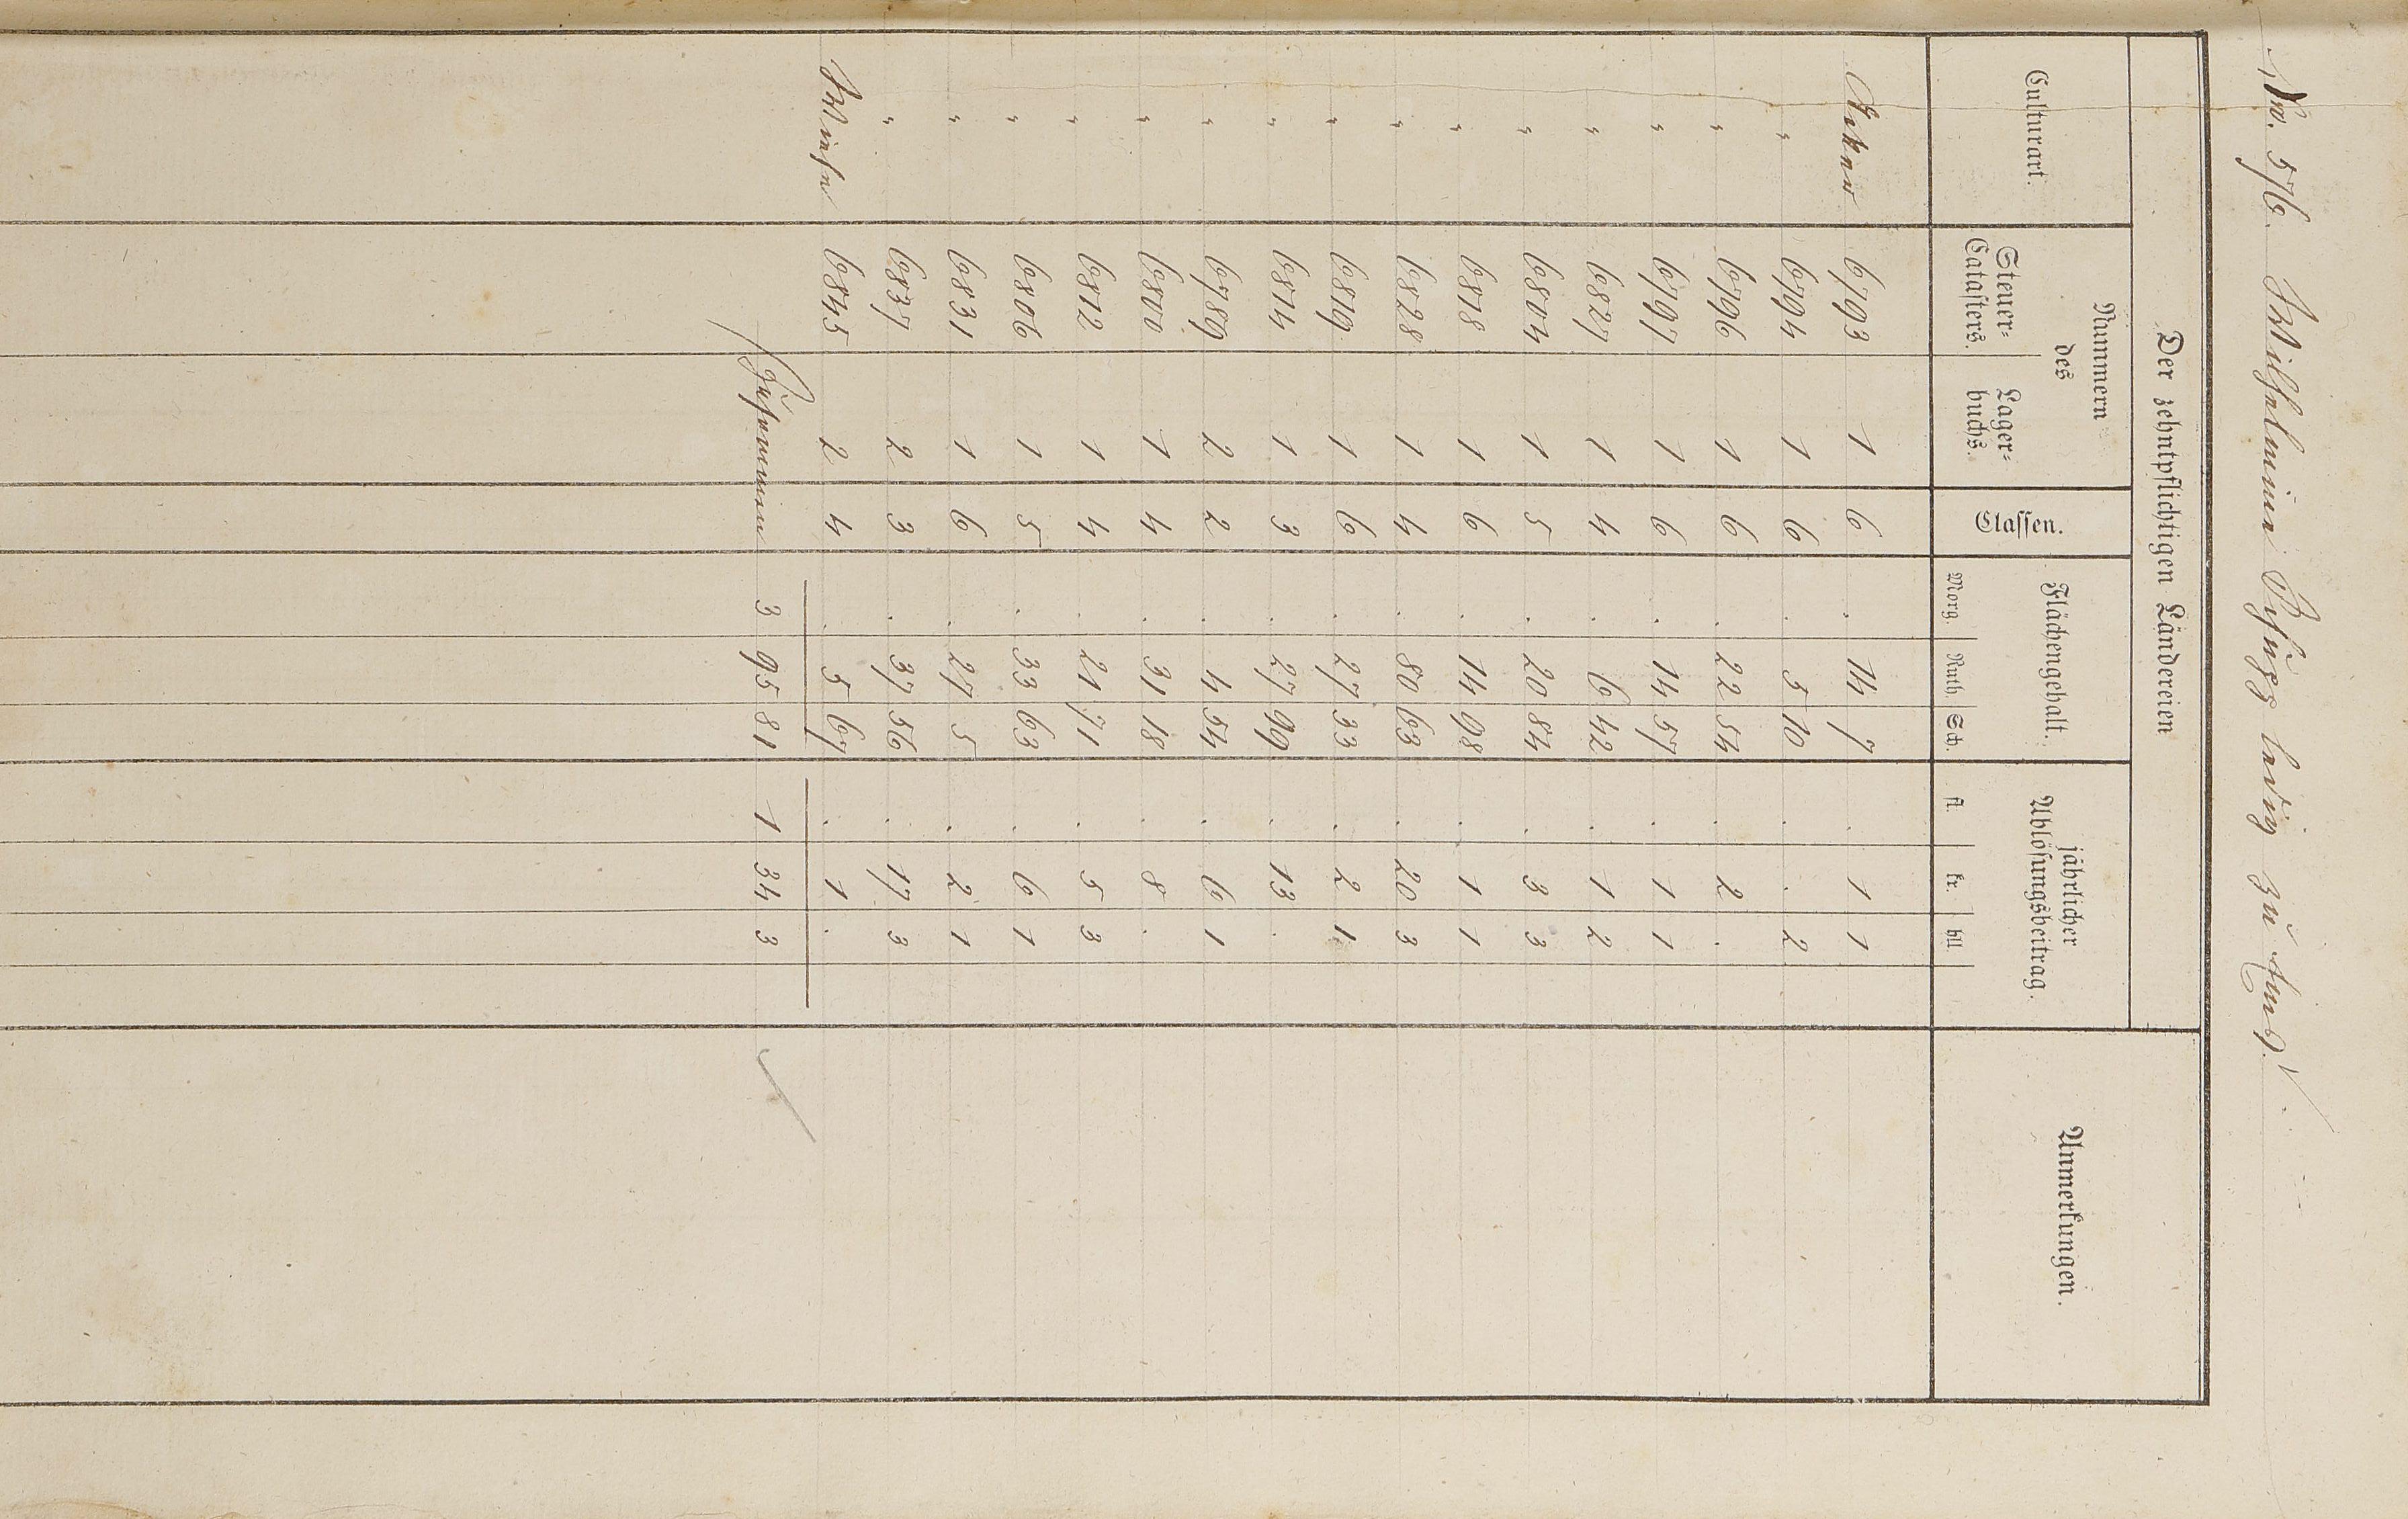 No. 576. Wilhelmine ledig zu
Der zehntpflichtigen Ländereien
Culturart.
Nummern
des
Steuer=
Catasters.
Lager=
buchs.
Classen.
Flächengehalt.
Morg. Ruth. Sch.
jährlicher
Ablösungsbeitrag.
fl. kr. hll.
Anmerkungen.
Acker 6793 1 6 . 14 7 . 1 1
" 6794 1 6 . 5 10 . . 2
" 6796 1 6 . 22 54 . 2 .
" 6797 1 6 . 14 57 . 1 1
" 6827 1 4 . 6 42 . 1 2
" 6804 1 5 . 20 84 . 3 3
" 6818 1 6 . 14 98 . 1 1
" 6828 1 4 . 80 63 . 20 3
" 6819 1 6 . 27 33 . 2 1
" 6814 1 3 . 27 99 . 13 .
" 6789 2 2 . 4 54 . 6 1
" 6800 1 4 . 31 18 . 8 .
" 6812 1 4 . 21 71 . 5 3
" 6806 1 5 . 33 63 . 6 1
" 6831 1 6 . 27 5 . 2 1
" 6837 2 3 . 37 56 . 17 3
Wiese 6845 2 4 . 5 67 . 1 .
Zusammen 3 95 81 1 34 3